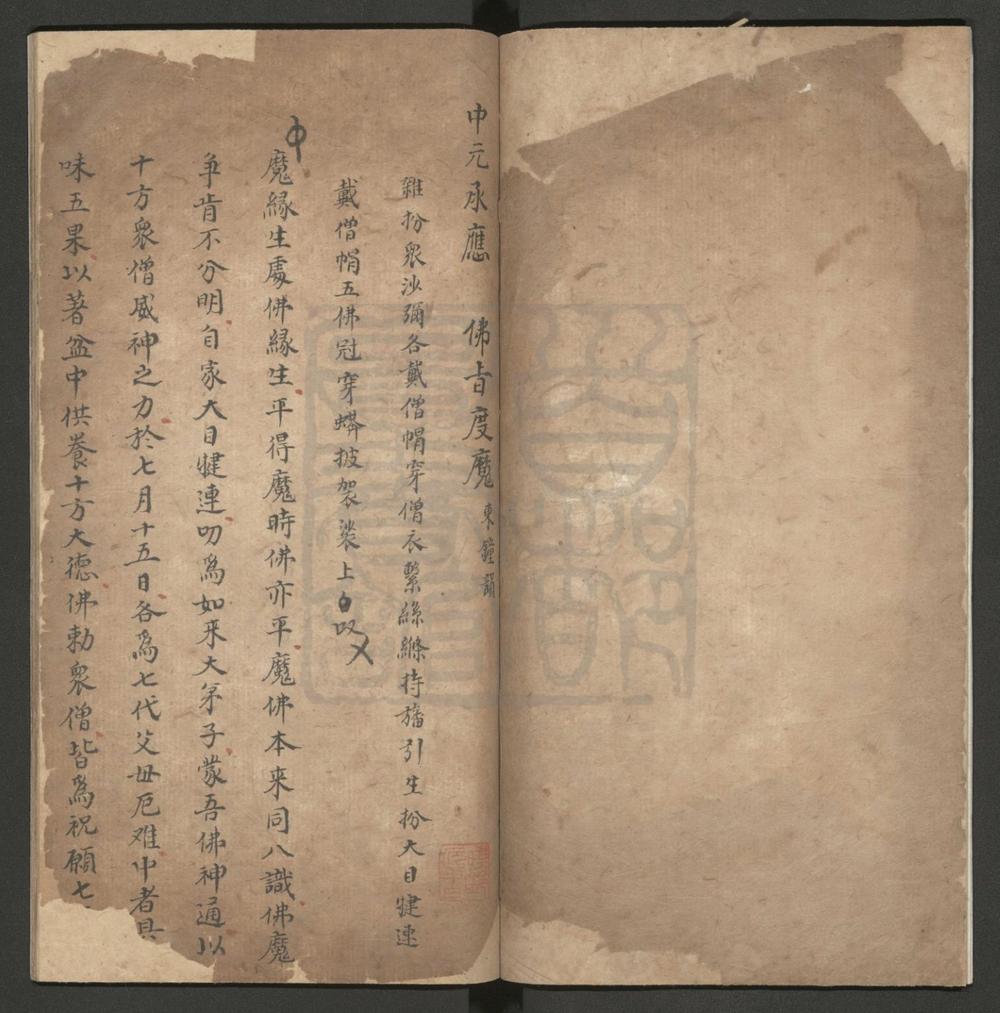 中元承應　佛旨度魔 東鐘韻
雜扮衆沙彌各戴僧帽穿僧衣繫絲縧持旛引生扮大目犍連
戴僧帽五佛冠穿蟒披袈裟上白叹
魔緣生處佛緣生平得魔時佛亦平魔佛本來同八識佛魔
争肯不分明自家大目犍連叨為如来大弟子蒙吾佛神通以
十方衆僧威神之力於七月十五日各為七代父母厄难中者具
味五果以著盆中供養十方大德佛勅衆僧皆為祝願七